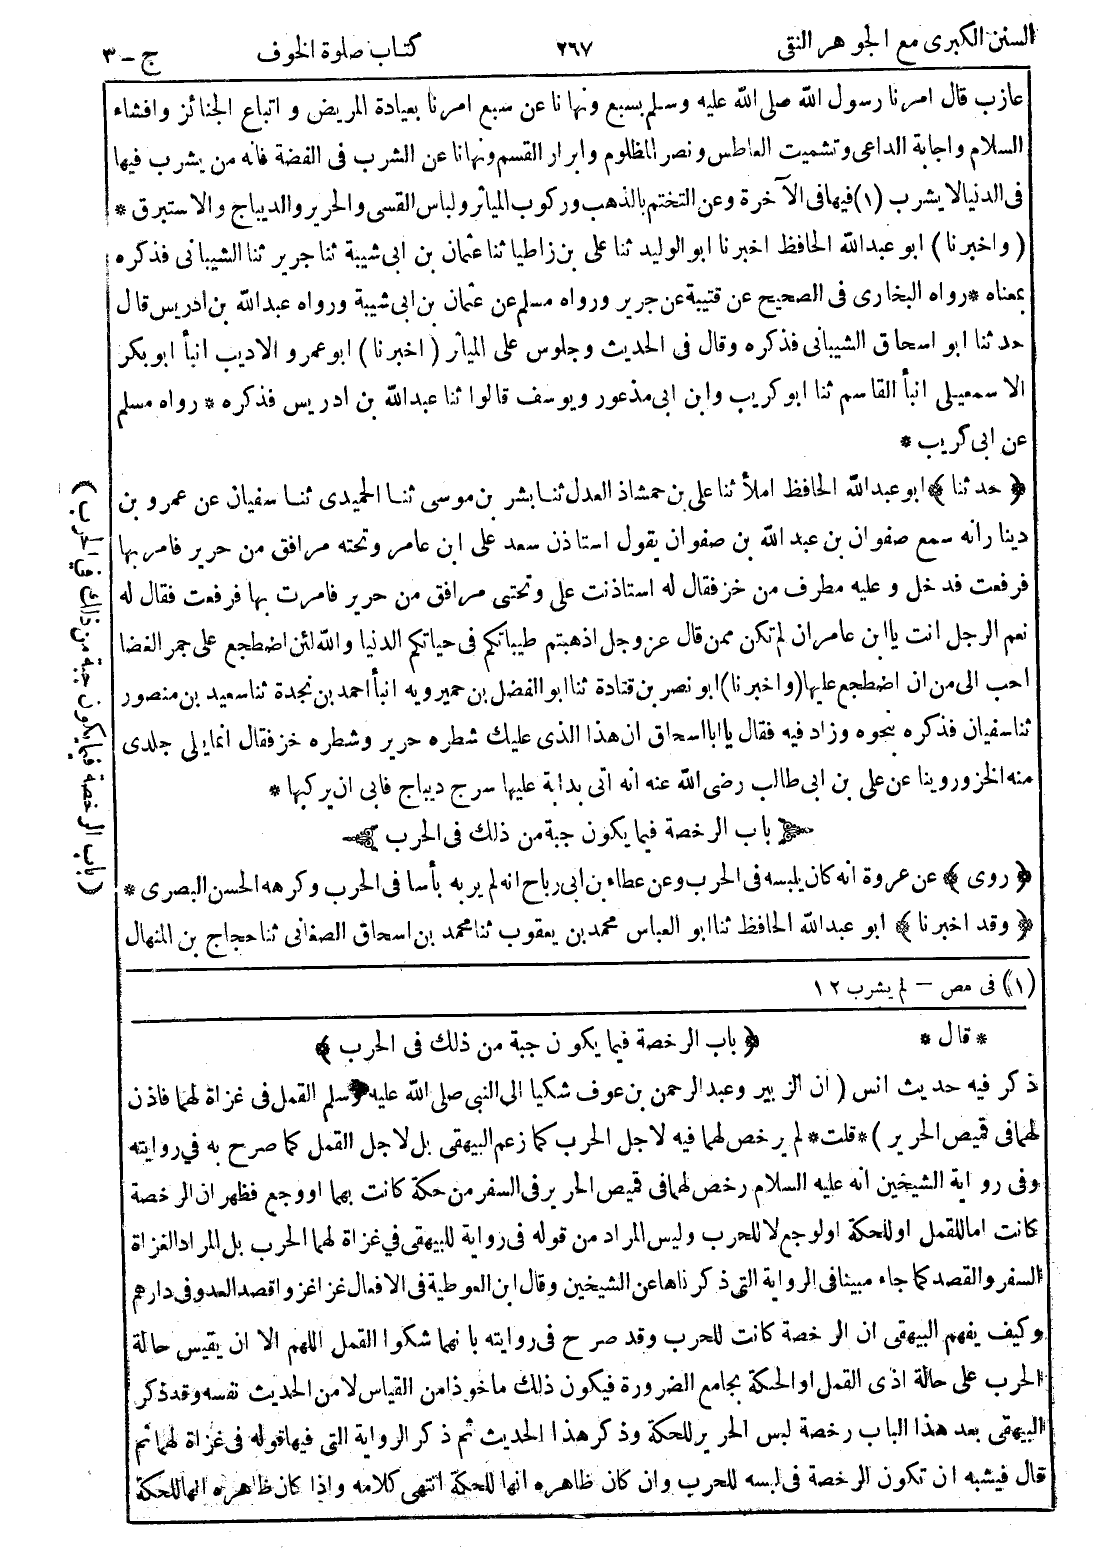 السنن الكبرى مع الجوهر النقى ٢٦٧ كتاب صلوة الخوف ج - ٣
عازب قال امرنا رسول الله صلى الله عليه وسلم بسبع ونهانا عن سبع امرنا بعيادة المريض و اتباع الجنائز وافشاء
السلام واجابة الداعى وتشميت العاطس ونصر المظلوم وابرار القسم ونهانا عن الشرب فى الفضة فانه من يشرب فيها
فى الدنيا لا يشرب (١) فيها فى الآخرة وعن التختم بالذهب وركوب المياثر ولباس القسى والحرير والديباج والاستبرق *
(واخبرنا) ابو عبدالله الحافظ اخبرنا ابو الوليد ثنا على بن زاطيا ثنا عثمان بن ابى شيبة ثنا جرير ثنا الشيبانى فذكره
بمعناه * رواه البخارى فى الصحيح عن قتيبة عن جرير ورواه مسلم عن عثمان بن ابى شيبة ورواه عبدالله بن ادريس قال
حدثنا ابو اسحاق الشيبانى فذكره وقال فى الحديث وجلوس على المياثر (اخبرنا) ابو عمرو الاديب انبأ ابو بكر
الاسمعيلى انبأ القاسم ثنا ابو كريب وابن ابى مذعور ويوسف قالوا ثنا عبدالله بن ادريس فذكره * رواه مسلم
عن ابى كريب *
﴿ حدثنا ﴾ ابو عبدالله الحافظ املأ ثنا على بن حمشاذ العدل ثنا بشر بن موسى ثنا الحميدى ثنا سفيان عن عمرو بن
دينار انه سمع صفوان بن عبد الله بن صفوان يقول استاذن سعد على ابن عامر وتحته مرافق من حرير فامر بها
فرفعت فدخل و عليه مطرف من خز فقال له استاذنت على وتحتى مرافق من حرير فامرت بها فرفعت فقال له
نعم الرجل انت يا ابن عامر ان لم تكن ممن قال عز وجل اذهبتم طيباتكم فى حياتكم الدنيا والله لئن اضطجع على جمر الغضا
احب الى من ان اضطجع عليها (واخبرنا) ابو نصر بن قتادة ثنا ابو الفضل بن حميرويه انبأ احمد بن نجدة ثنا سعيد بن منصور
ثنا سفيان فذكره بنحوه وزاد فيه فقال يا ابا اسحاق ان هذا الذى عليك شطره حرير وشطره خز فقال انما يلى جلدى
منه الخز وروينا عن على بن ابى طالب رضى الله عنه انه اتى بدابة عليها سرج ديباج فابى ان يركبها *
باب الرخصة فيما يكون جبة من ذلك فى الحرب
﴿ روى ﴾ عن عروة انه كان يلبسه فى الحرب وعن عطاء بن ابى رباح انه لم ير به بأسا فى الحرب وكرهه الحسن البصرى *
﴿ وقد اخبرنا ﴾ ابو عبدالله الحافظ ثنا ابو العباس محمد بن يعقوب ثنا محمد بن اسحاق الصغانى ثنا حجاج بن المنهال
(باب الرخصة فيما يكون جبة من ذلك في الحرب)
(١) فى مص - لم يشرب ١٢
* قال * ﴿ باب الرخصة فيما يكون جبة من ذلك فى الحرب ﴾
ذكر فيه حديث انس (ان الزبير وعبد الرحمن بن عوف شكيا الى النبى صلى الله عليه وسلم القمل فى غزاة لهما فاذن
لهما فى قميص الحرير) * قلت * لم يرخص لهما فيه لاجل الحرب كما زعم البيهقى بل لاجل القمل كما صرح به في روايته
وفى رواية الشيخين انه عليه السلام رخص لهما فى قميص الحرير فى السفر من حكة كانت بهما او وجع فظهر ان الرخصة
كانت اما للقمل او للحكة او لوجع لا للحرب وليس المراد من قوله فى رواية للبيهقى في غزاة لهما الحرب بل المراد الغزاة
السفر والقصد كما جاء مبينا فى الرواية التى ذكرناها عن الشيخين وقال ابن القوطية فى الافعال غزا غزوا قصد العدو فى دارهم
وكيف يفهم البيهقى ان الرخصة كانت للحرب وقد صرح فى روايته بانهما شكوا القمل اللهم الا ان يقيس حالة
الحرب على حالة اذى القمل او الحكة بجامع الضرورة فيكون ذلك ماخوذا من القياس لا من الحديث نفسه وقد ذكر
البيهقى بعد هذا الباب رخصة لبس الحرير للحكة وذكر هذا الحديث ثم ذكر الرواية التى فيها قوله فى غزاة لهما ثم
قال فيشبه ان تكون الرخصة فى لبسه للحرب وان كان ظاهره انها للحكة انتهى كلامه واذا كان ظاهره انها للحكة